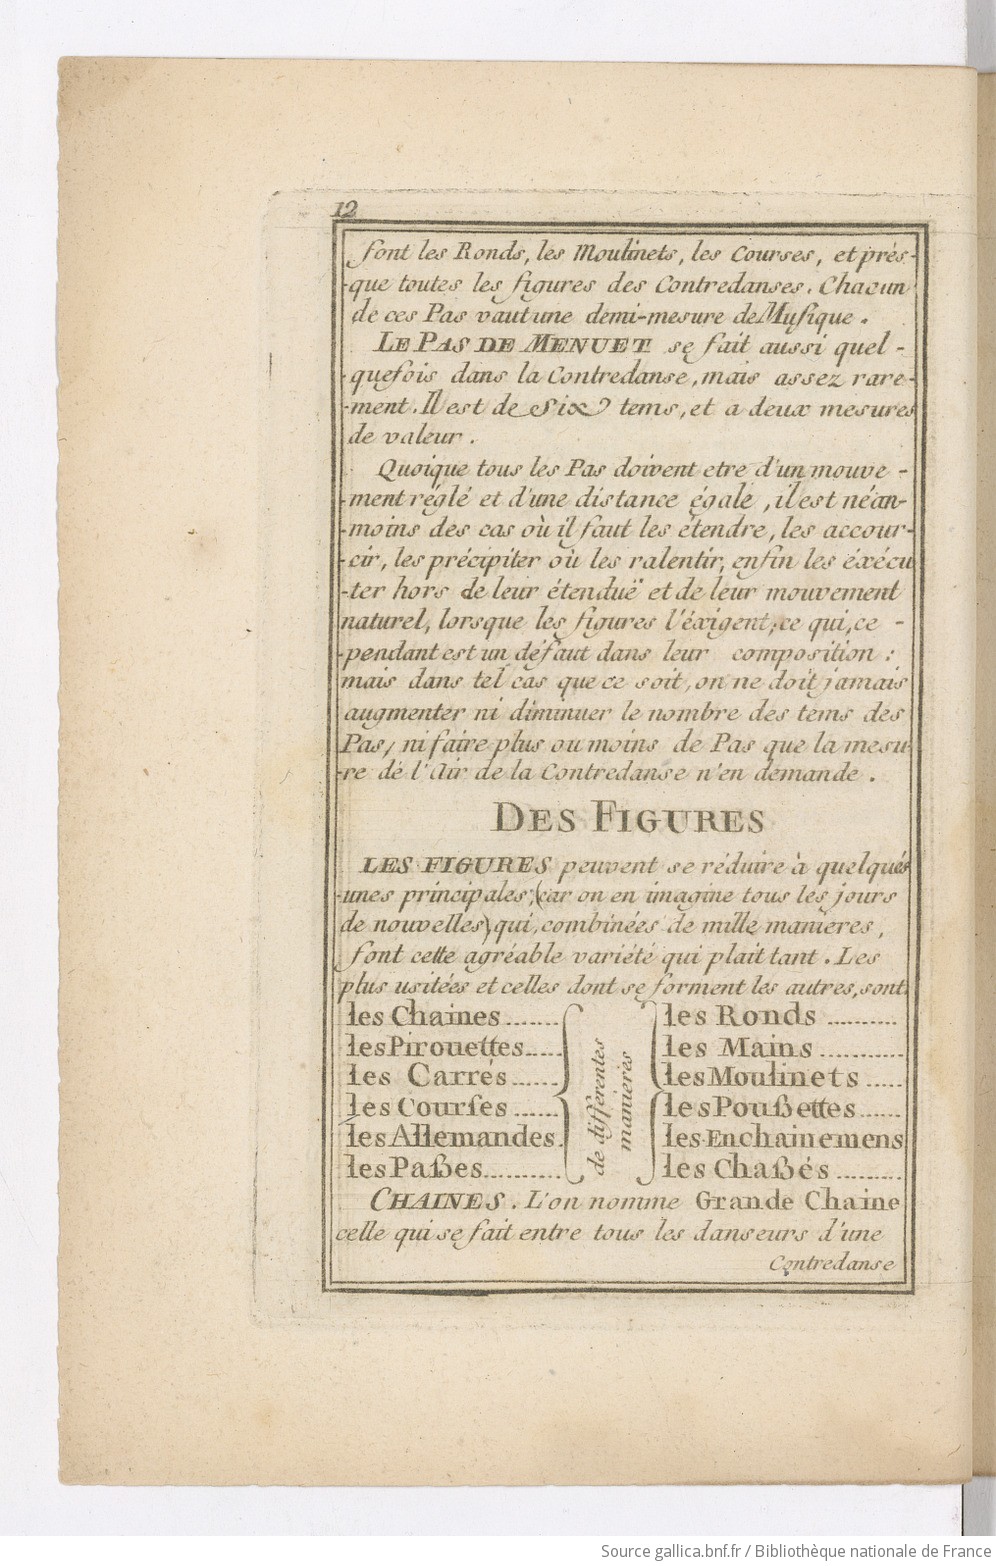 12
font les Ronds, les Moulinets, les Courses, et près-
-que toutes les figures des Contredanses. Chacun
de ces Pas vaut une demi-mesure de Musique.
LE PAS DE MENUET se fait aussi quel-
-quefois dans la Contredanse, mais assez rare-
-ment. Il est de Six tems, et a deux mesures
de valeur.
Quoique tous les Pas doivent etre d'un mouve-
-ment réglé et d'une distance égale, il est néan-
-moins des cas où il faut les étendre, les accour-
-cir, les précipiter où les ralentir, enfin les éxécu
-ter hors de leur étenduë et de leur mouvement
naturel, lorsque les figures l'éxigent; ce qui, ce-
-pendant est un défaut dans leur composition:
mais dans tel cas que ce soit, on ne doit jamais
augmenter ni diminuer le nombre des tems des
Pas, ni faire plus ou moins de Pas que la mesu-
-re de l'Air de la Contredanse n'en demande.
DES FIGURES
LES FIGURES peuvent se réduire à quelques
-unes principales; (car on en imagine tous les jours
de nouvelles) qui, combinées de mille manieres,
font cette agréable varieté qui plait tant. Les
plus usitées et celles dont se forment les autres, sont
les Chaines....... les Ronds...........
les Pirouettes..... les Mains............
les Carrés...... les Moulinets.....
les Courses...... les Poußettes......
les Allemandes. les Enchainemens
les Paßes........... les Chaßés..........
de differentes
manieres
CHAINES. L'on nomme Grande Chaine
celle qui se fait entre tous les danseurs d'une
Contredanse
Source gallica.bnf.fr / Bibliothèque nationale de France